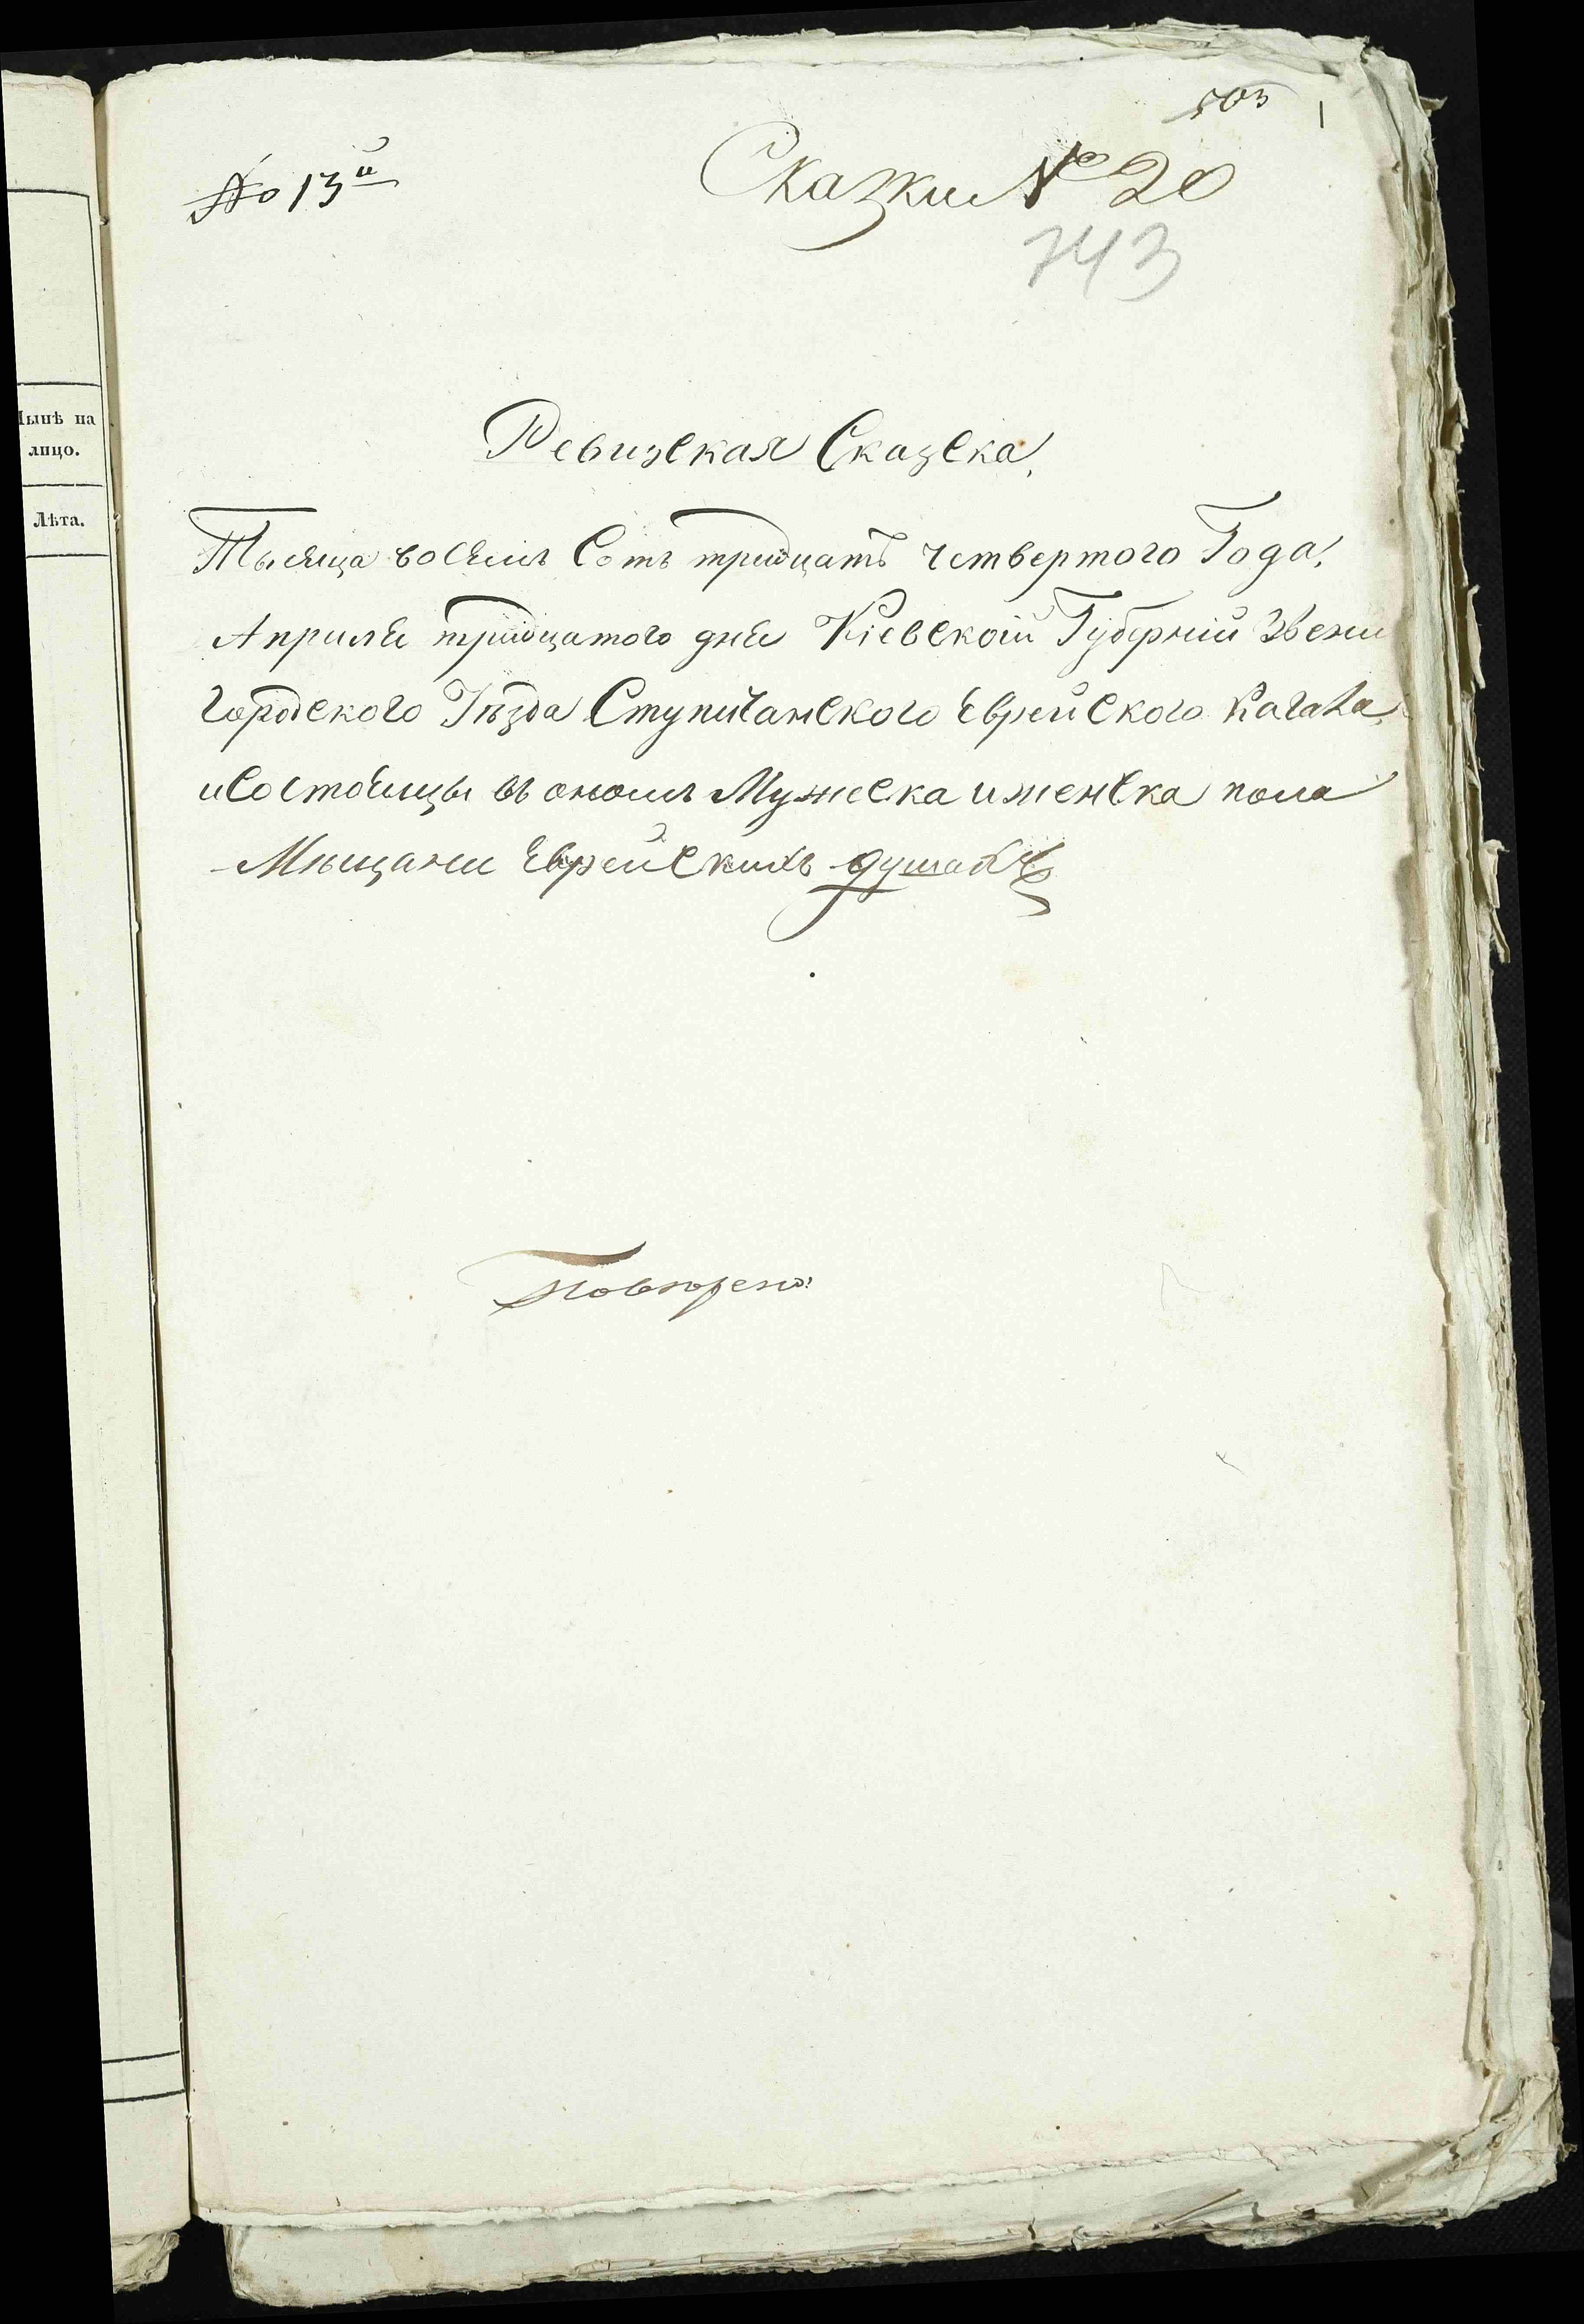 503
№ 13й
Сказки № 20
743
Ревизская Сказска,
Тысяща восемь Сотъ тридцать четвертого Года,
Апреля тридцатого дня Кіевской Губерніи Звени
городского Уезда Ступичанского Еврейского Кагала
и Состоящы въ ономъ Мужеска и женска пола
Мещани Еврейскихъ душахъ
Повторено
Нынѣ на
лицо.
Лѣта.